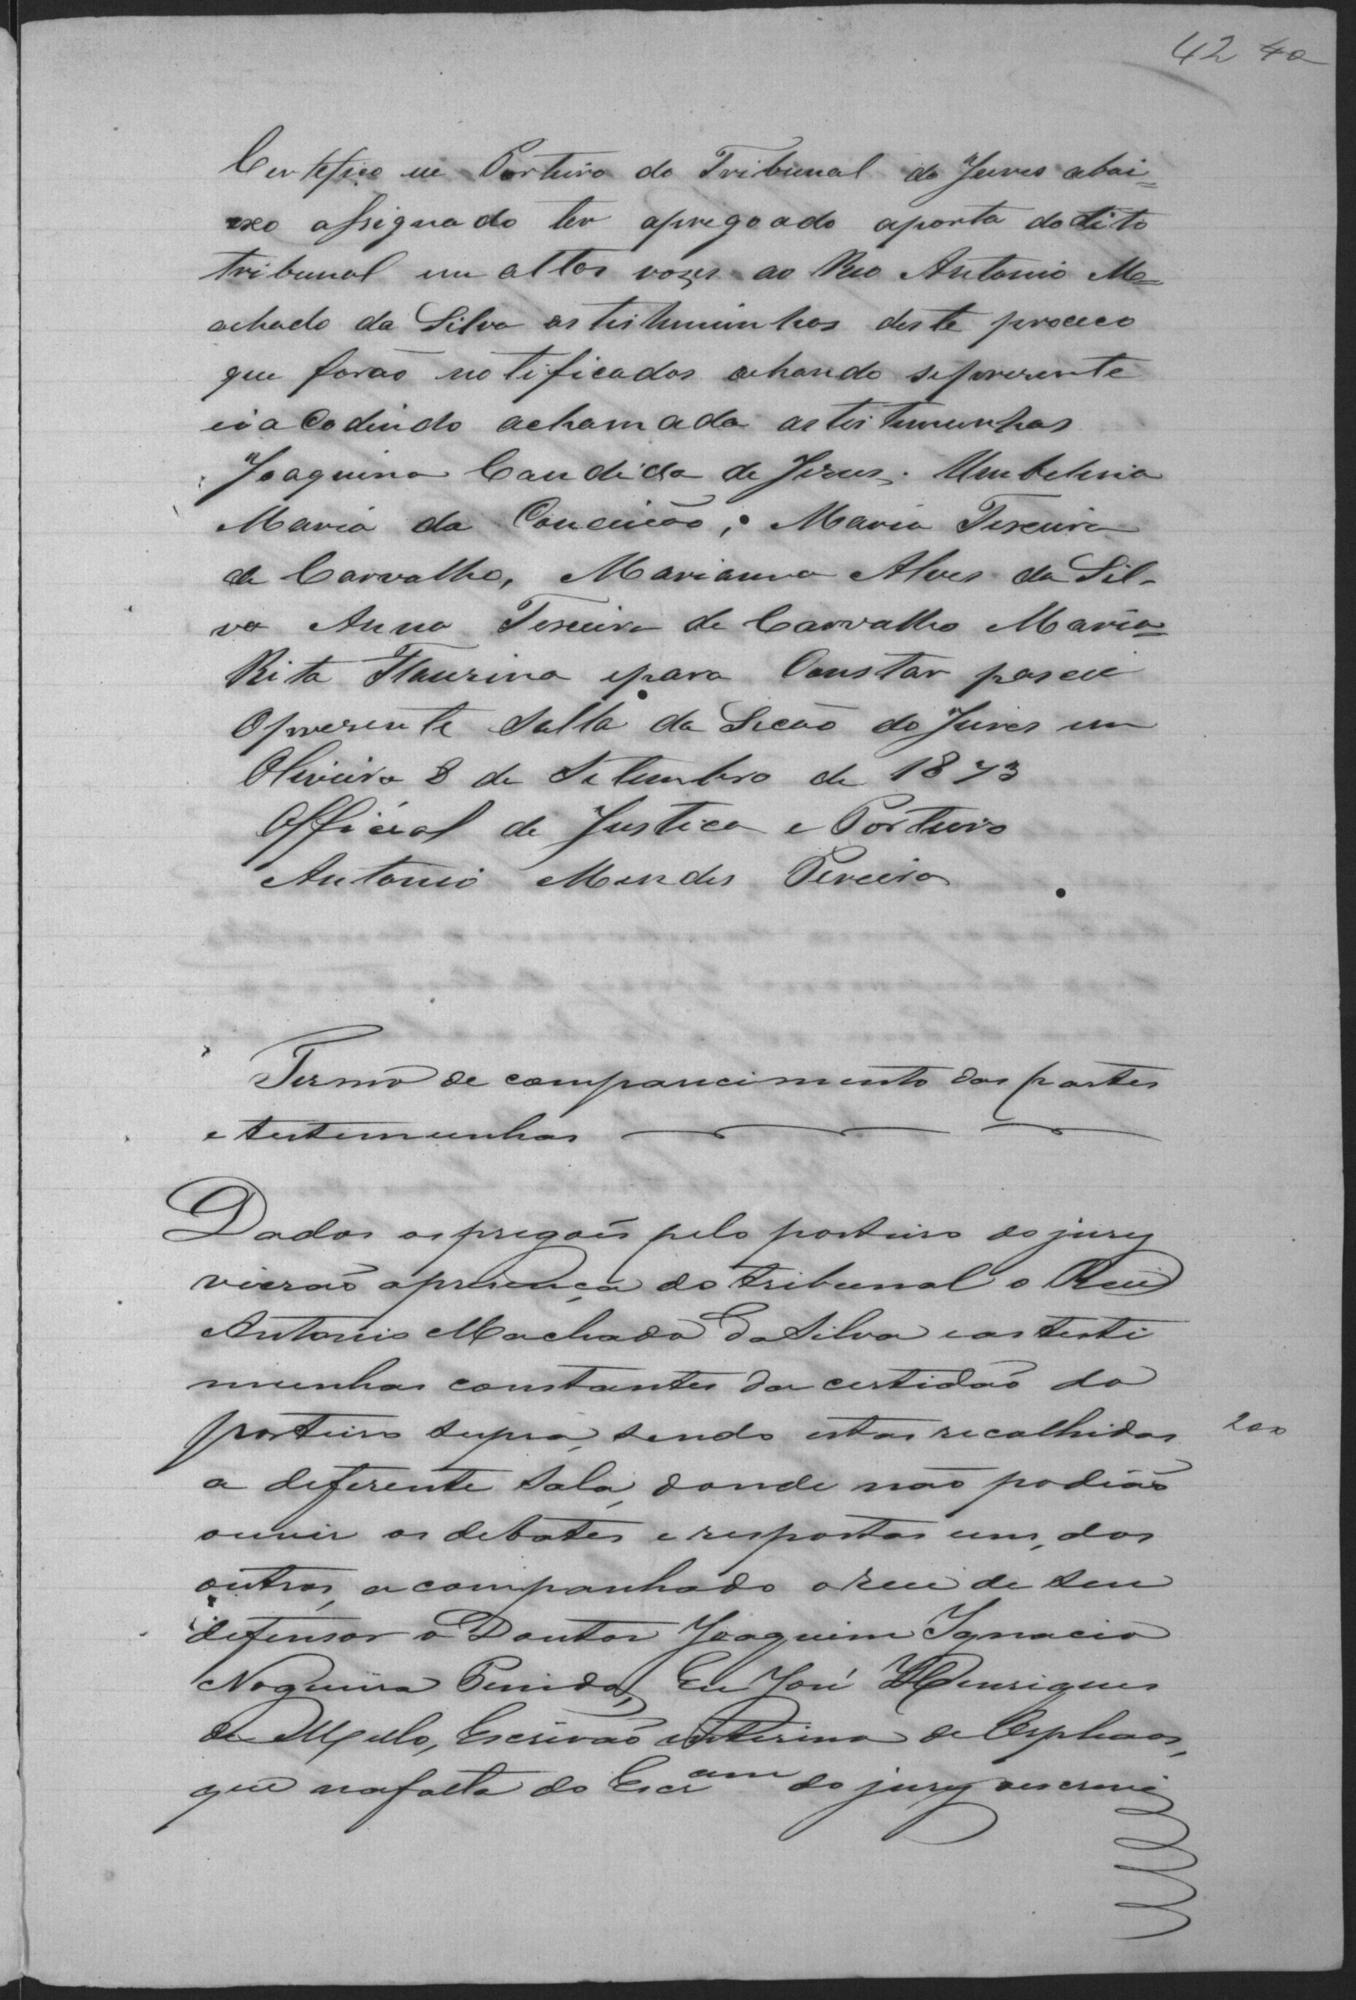 42 40
Certefico eu Porteiro do Tribunal do Jures abai=
xo assignado ter apregoado aporta dodito
tribunal em altos vozes ao Reo Antonio Ma=
achado da Silva astestimunhas deste proceco
que forão notificadas achando sepprerente
eiacodindo achamada astestimunhas
Joaquina Candida de Jezus. Umbelina
Maria da Conceicão, Maria Texeira
de Carvalho, Marianna Alves da Sil-
va Anna Texeira de Carvalho Maria=
Rita Flauzina epara Constar pasei
Opprerente Salla da Secão do Jures em
Oliveira 8 de Setembro de 1873
Official de Justica e Porteiro
Antonio Mendes Pereira
Termo de comparecimento das partes
e testemunhas
Dados os pregões pelo porteiro do jury
vierão a presença do tribunal o Reu
Antonio Machado da Silva e as teste
munhas constantes da certidão do
porteiro supra, sendo estas recolhidas
200
a diferente sala, donde não podião
ouvir os debates e respostas umas, das
outras, acompanhado o reu de seu
defensor o Doutor Joaquim Ignacio
Nogueira Penido, Eu José Henriques
de Mello, Escrivão interino de Orphaos,
que na falta do Escram do jury o escrevi